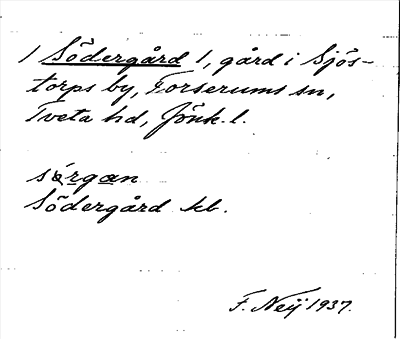 / Södergård /, gård i Sjös-
torps by, Forserums sn,
Tveta hd, Jönk. l.
Södergård kb.
F. Neij 1937.